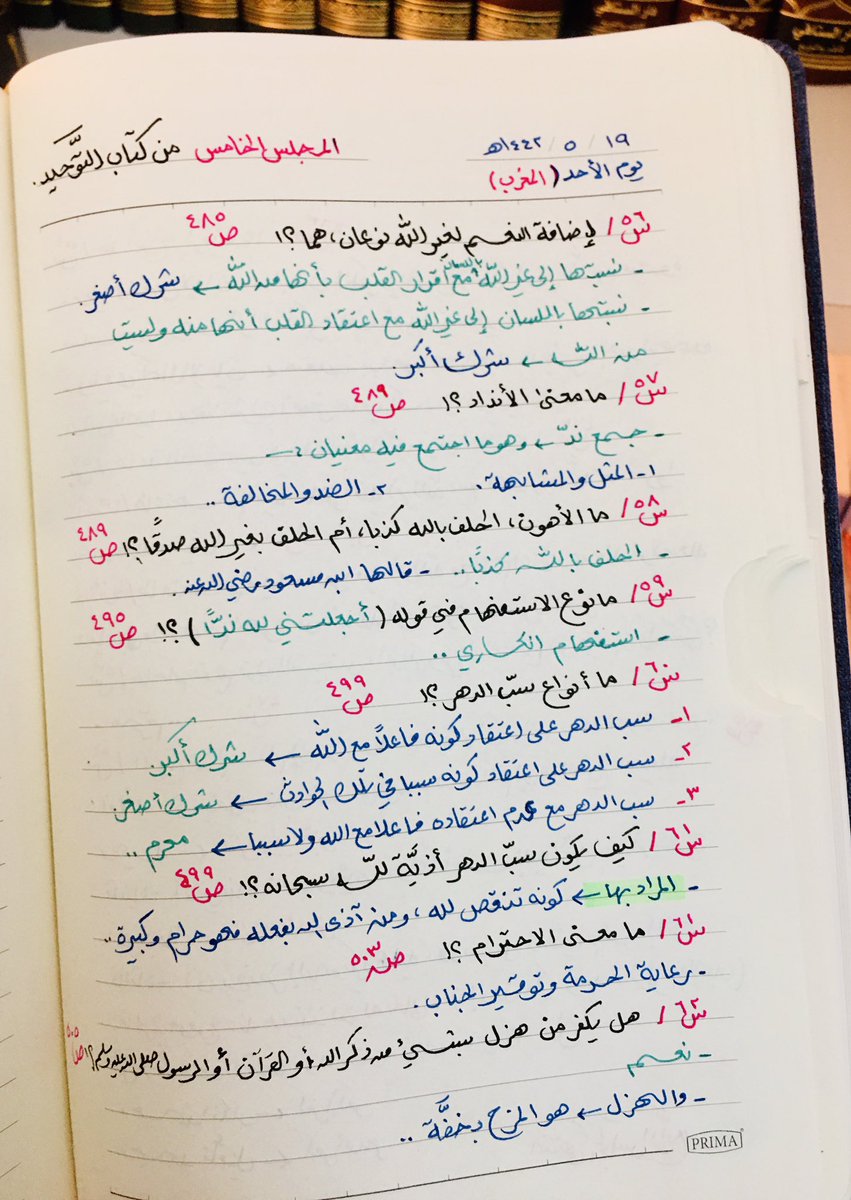 ١٩ / ٥ / ١٤٤٢هـ
يوم الأحد (المغرب)
المجلس الخامس من كتاب التَّوحيد.
س٥٦/ لإضافة النعم لغير الله نوعان، هما؟! ص٤٨٥
- نسبتها إلى غير الله باللسان مع إقرار القلب بأنها من الله ← شرك أصغر.
- نسبتها باللسان إلى غير الله مع اعتقاد القلب أنها منه وليست
من الله ← شرك أكبر.
س٥٧/ ما معنى الأنداد؟! ص٤٨٩
- جمع ندّ ← وهو ما اجتمع فيه معنيان :-
١- المثل والمشابهة. ٢- الضد والمخالفة ..
س٥٨/ ما الأهون، الحلف بالله كذبا، أم الحلف بغير الله صدقًا؟! ص٤٨٩
- الحلف بالله كذبًا .. - قالها ابن مسعود رضي الله عنه.
س٥٩/ ما نوع الاستفهام في قوله (أجعلتني لله ندًّا)؟! ص٤٩٥
- استفهام انكاري ..
س٦٠/ ما أنواع سبّ الدهر؟! ص٤٩٩
١- سب الدهر على اعتقاد كونه فاعلاً مع الله ← شرك أكبر
٢- سب الدهر على اعتقاد كونه سببا في تلك الحوادث ← شرك أصغر.
٣- سب الدهر مع عدم اعتقاده فاعلا مع الله ولا سببا ← محرم ..
س٦١/ كيف يكون سبّ الدهر أذيَّة لله سبحانه؟! ص٤٩٩
- المراد بها ← كونه تنقص لله، ومن آذى الله بفعله فهو حرام وكبيرة ..
س٦١/ ما معنى الاحترام؟! ص٥٠٣
- رعاية الحرمة وتوقير الجناب.
س٦٢/ هل يكفر من هزل بشيء منه ذكر الله أو القرآن أو الرسول صلى الله عليه وسلم؟! ص٥٠٥
- نعم
- والهزل ← هو المزح بخفَّة ..
PRIMA